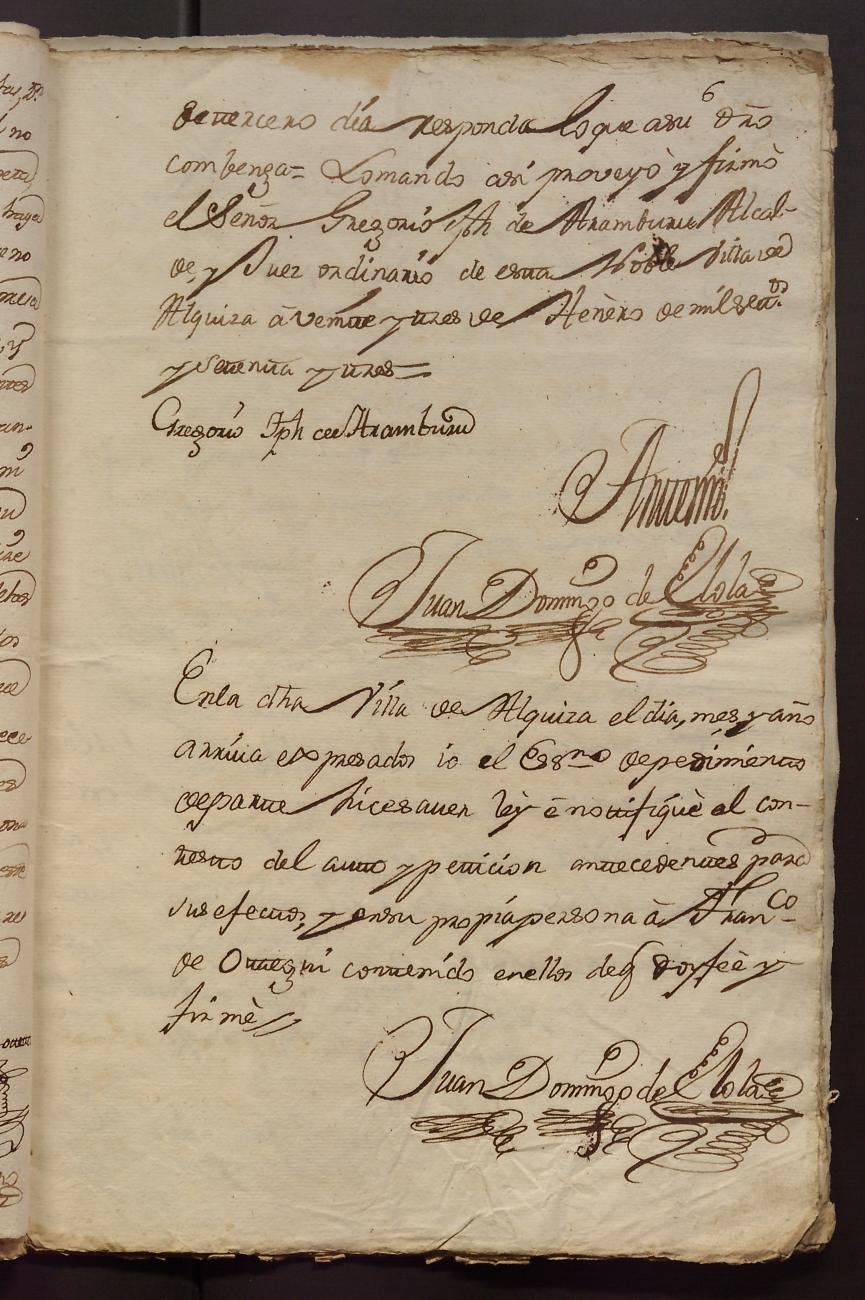 6
de tercero dia responda lo que a su dr̃o
combenga= Lo mando asi proveyò y firmò
el Señor Gregorio Jph de Aramburu Alcal-
de, y Juez ordinario de esta Noble Villa de
Alquiza à veinte y tres de Henèro de mil set.tos
y setenta y tres=
Gregorio Jph de Aramburu
Antemi
Juan Domingo de Elola
En la dha Villa de Alquiza el dia, mes, y año
arriva expresados io el Essno de pedimiento
de parte hice saver leỳ è notifiquè el con-
testo del auto y peticion antecedentes para
sus efectos, y en su propia persona à Franco
de Otegui contenido en ellos de q doy feè y
firmè
Juan Domingo de Elola